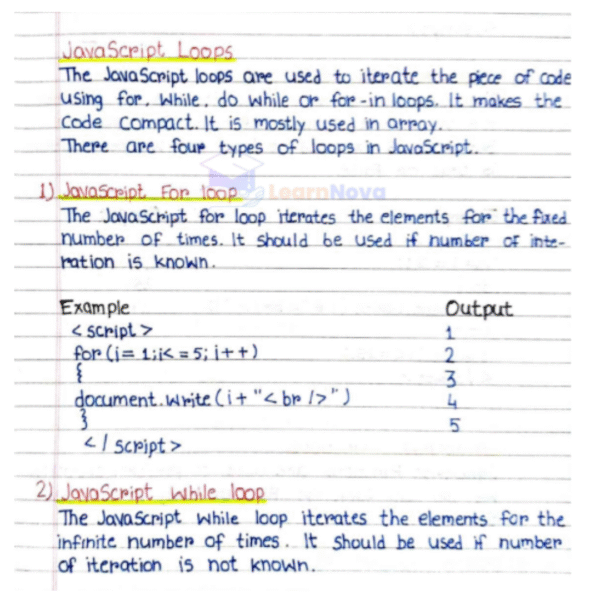 JavaScript Loops
The JavaScript loops are used to iterate the piece of code
using for, while, do while or for-in loops. It makes the
code compact. It is mostly used in array.
There are four types of loops in JavaScript.
LearnNova
1) JavaScript For loop
The JavaScript for loop iterates the elements for the fixed
number of times. It should be used if number of inte-
ration is known.
Example Output
<script> 1
for (i= 1;i<=5; i++) 2
{ 3
document.write(i+ "<br/>") 4
} 5
</script>
2) JavaScript while loop
The JavaScript while loop iterates the elements for the
infinite number of times. It should be used if number
of iteration is not known.